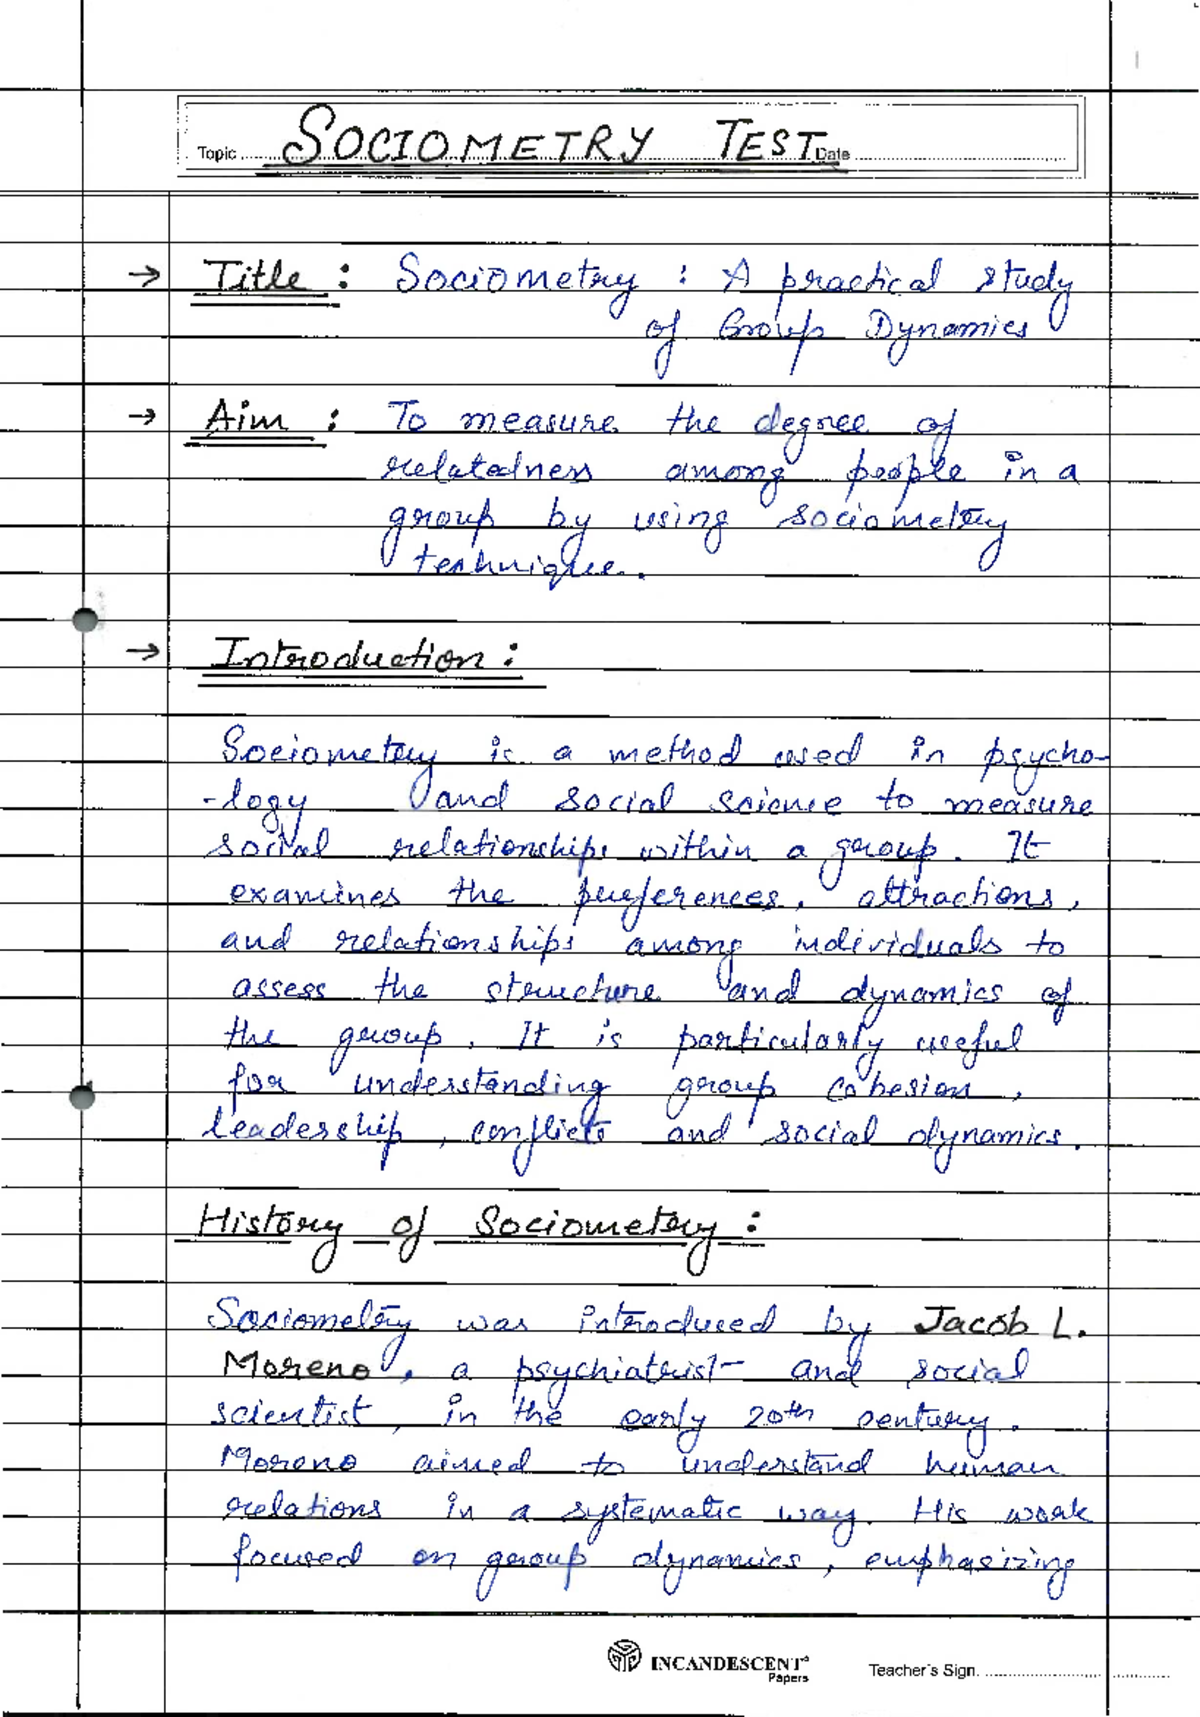 Topic SOCIOMETRY TEST Date
→ Title : Sociometry : A practical study
of Group Dynamics
→ Aim : To measure the degree of
relatedness among people in a
group by using sociometry
technique.
→ Introduction :
Sociometry is a method used in psycho-
-logy and social science to measure
social relationships within a group. It
examines the preferences, attractions,
and relationships among individuals to
assess the structure and dynamics of
the group. It is particularly useful
for understanding group cohesion,
leadership, conflicts and social dynamics.
History of Sociometry :
Sociometry was introduced by Jacob L.
Moreno, a psychiatrist and social
scientist, in the early 20th century.
Moreno aimed to understand human
relations in a systematic way. His work
focused on group dynamics, emphasizing
INCANDESCENT
Papers
Teacher's Sign.